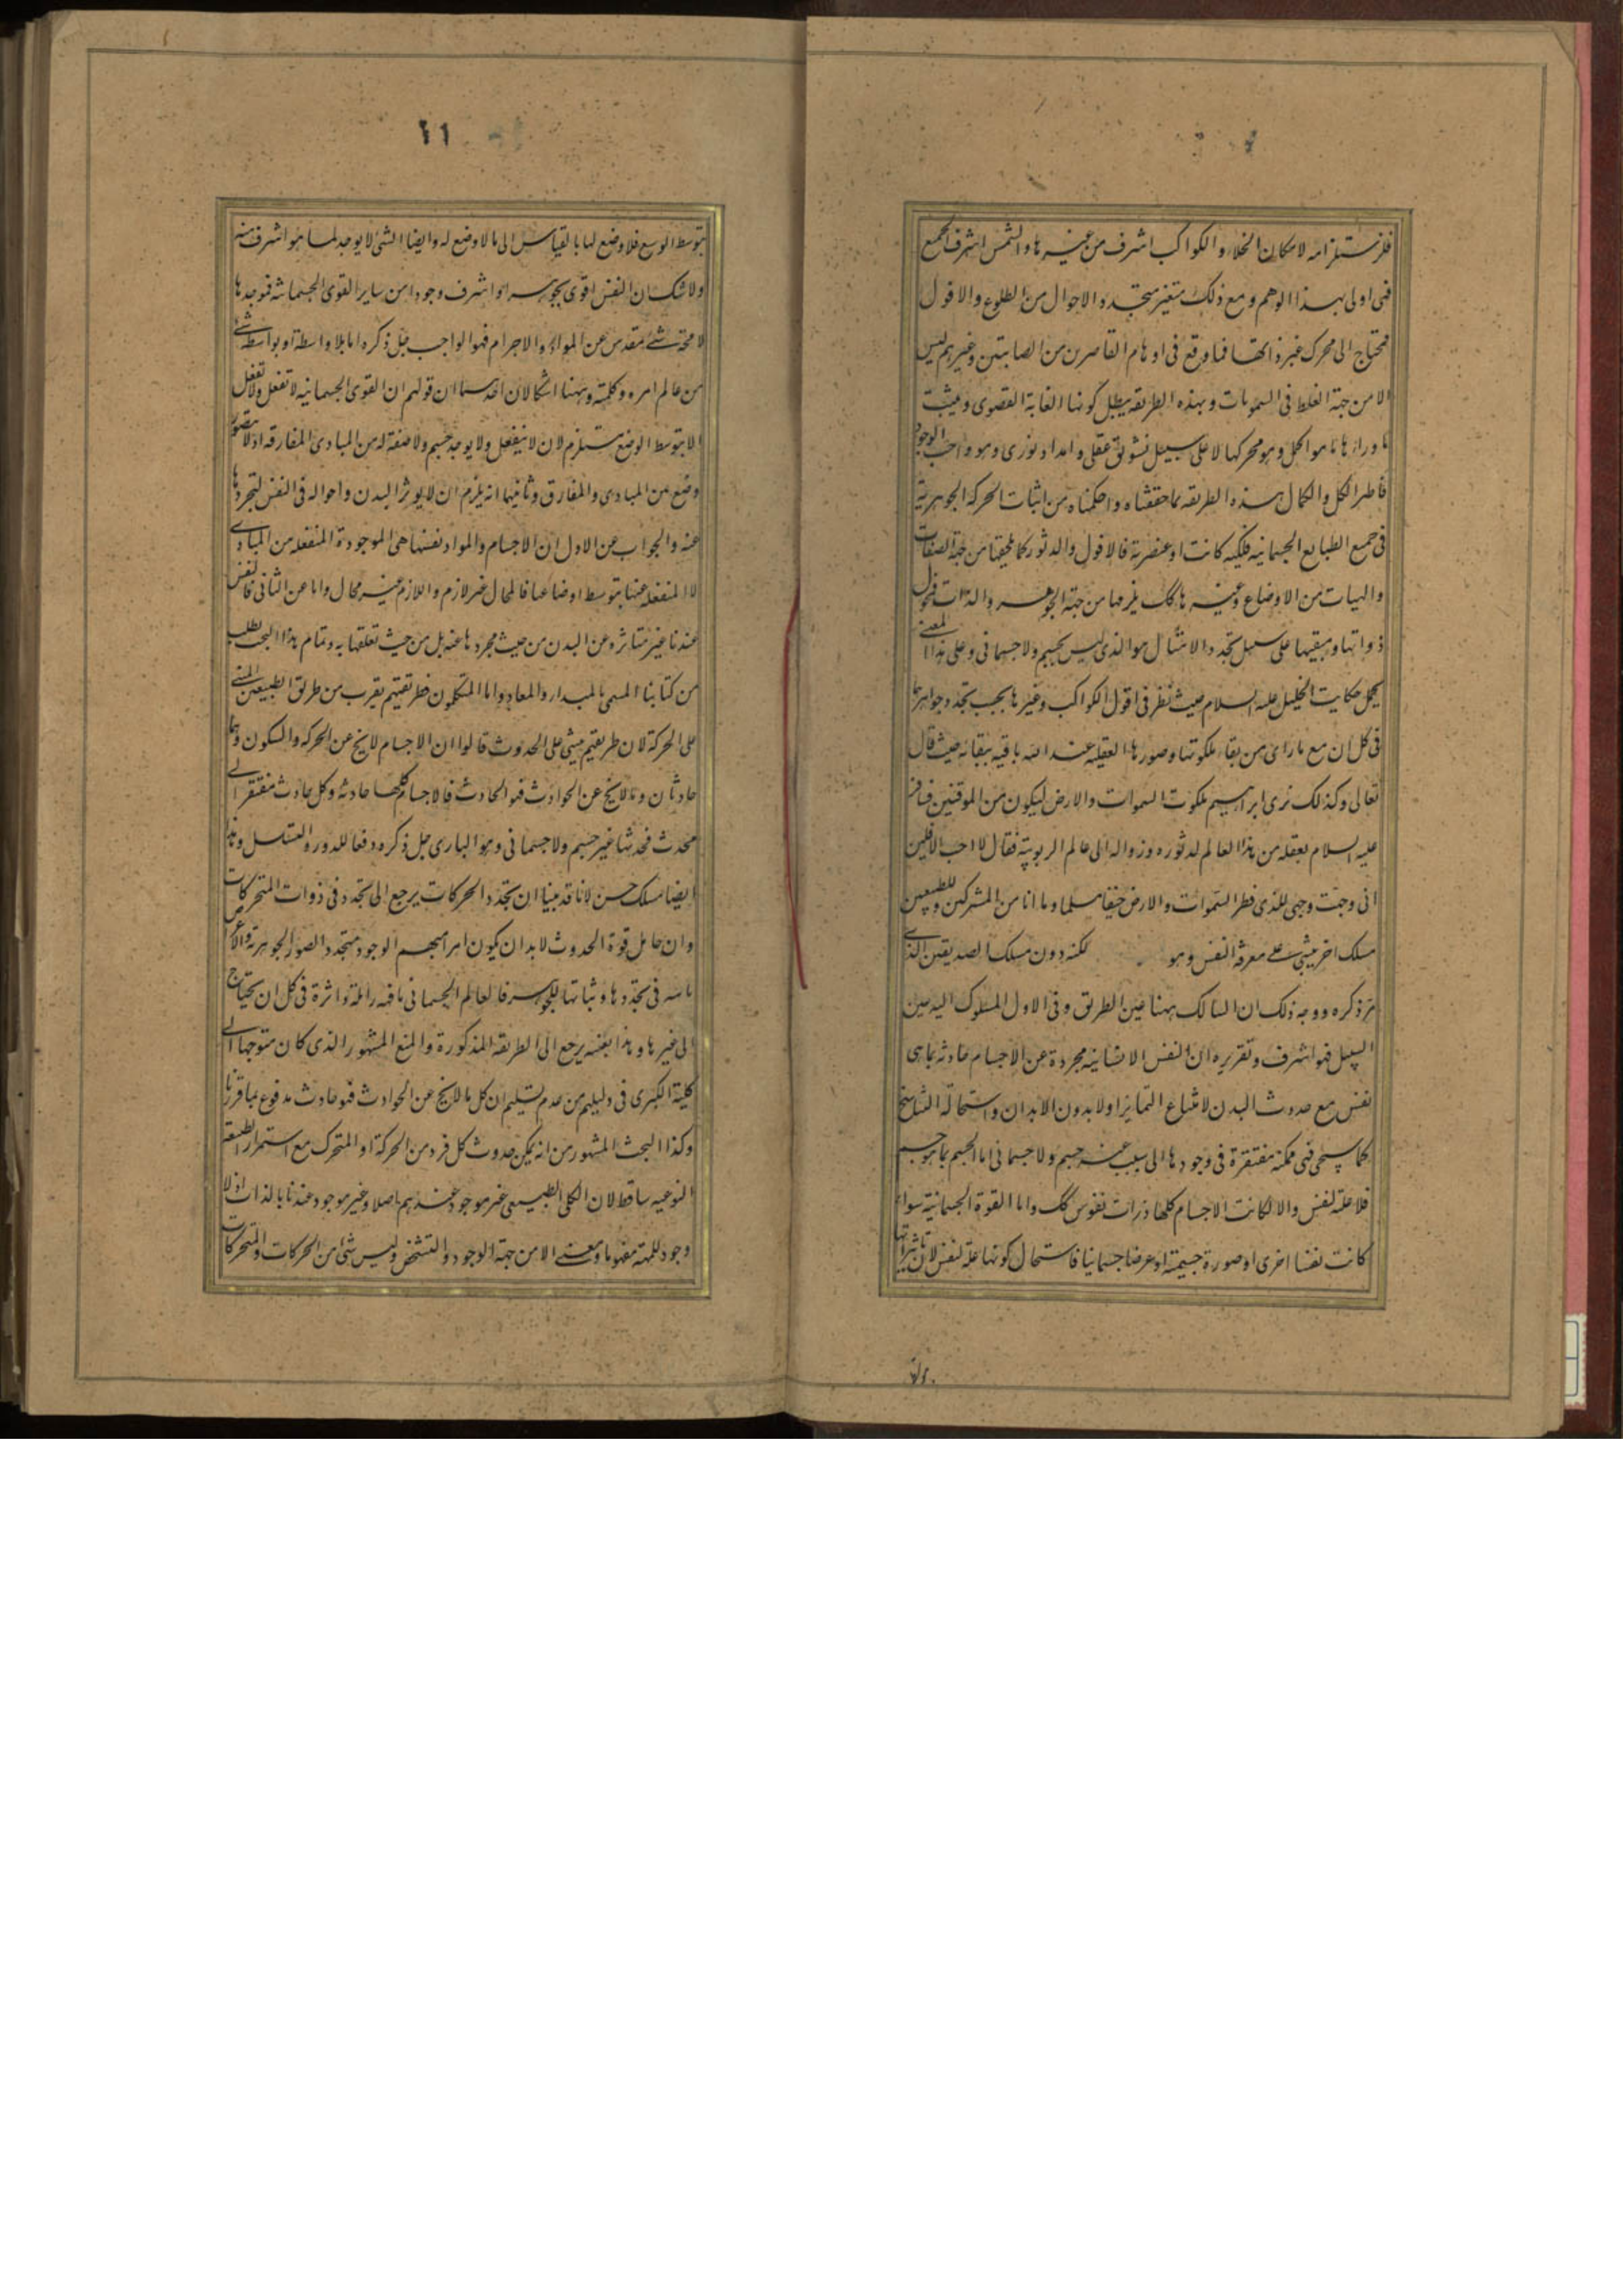 فلاستلزامه لامكان الخلاء والكواكب اشرف من غيرها والشمس اشرف الجميع
فهى اولى بهذا الوهم ومع ذلك متغير متجدد الاحوال من الطلوع والافول
فتحتاج الى محرك غير ذاتها فما وقع فى اوهام القاصرين من الصابئين وغيرهم ليس
الا من جهة الغلط فى السمويات وبهذه الطريقه يبطل كونها الغاية القصوى ويثبت
ما وراءها ما هو اجل وهو محركها لا على سبيل تشوق عقلى وامداد نورى وهو واجب الوجود
فاطر الكل والكمال هذه الطريقه بما حققناه واحكمناه من اثبات الحركة الجوهرية
فى جميع الطبايع الجسمانيه فلكيه كانت او عنصرية فالافول والدثور كما يلحقها من جهة الصفات
والهيات من الاوضاع وغيرها كك يلزمها من جهة الجوهر والذات فمحول
ذواتها ومبقيها على سبيل تجدد الامثال هو الذى ليس بجسم ولا جسمانى وعلى هذا المعنى
يحمل حكايت الخليل عليه السلام حيث نظر فى افول الكواكب وغيرها بحسب تجدد جواهرها
فى كل ان مع ما راى من بقاء ملكوتها وصورها العقليه عند الله باقيه ببقائه حيث قال
تعالى وكذلك نرى ابراهيم ملكوت السموات والارض ليكون من الموقنين فسافر
عليه السلام بعقله من هذا العالم لدثوره وزواله الى عالم الربوبية فقال لا احب الافلين
انى وجهت وجهى للذى فطر السموات والارض حنيفا مسلما وما انا من المشركين وللطبيعيين
مسلك اخر يبتنى على معرفة النفس وهو لكنه دون مسلك الصديقين الذى
مر ذكره ووجه ذلك ان السالك ههنا عين الطريق وفى الاول المسلوك اليه عين
السبيل فهو اشرف وتقريره ان النفس الانسانيه مجردة عن الاجسام حادثه بما هى
نفس مع حدوث البدن لامتناع التمايز اولا بدون الابدان واستحالة التناسخ
كما سيجى فهى ممكنه مفتقرة فى وجودها الى سبب غير جسم ولا جسمانى اما الجسم بما هو جسم
فلا علة لنفس والا لكانت الاجسام كلها ذوات نفوس كك واما القوة الجسمانية سواء
كانت نفسا اخرى او صورة جسمية او عرضا جسمانيا فاستحال كونها علة لنفس لان تاثيراتها
١١
بتوسط الوضع فلا وضع لها بالقياس الى ما لا وضع له وايضا الشئ لا يوجد لما هو اشرف منه
ولا شك ان النفس اقوى تجوهرا واشرف وجودا من ساير القوى الجسمانيه فموجدها
لا محة شئ مقدس عن المواد والاجرام فهو الواجب جل ذكره اما بلا واسطة او بواسطة شئ
من عالم امره وكلمته وههنا اشكالان احدهما ان قولهم ان القوى الجسمانيه لا تفعل ولا تنفعل
الا بتوسط الوضع مستلزم لان لا ينفعل ولا يوجد جسم ولا صفة له من المبادى المفارقه اذ لا يتصور
وضع من المبادى والمفارق وثانيهما انه يلزم ان لا يوثر البدن واحواله فى النفس لتجردها
عنه والجواب عن الاول ان الاجسام والمواد نفسها هى الموجودة المنفعله من المبادى
لا المنفعله عنها بتوسط اوضاعها فالمحال غير لازم واللازم غير محال واما عن الثانى فالنفس
عندنا غير متاثره عن البدن من حيث تجردها عنه بل من حيث تعلقها به وتمام هذا البحث يطلب
من كتابنا المسمى بالمبدا والمعاد واما المتكلمون فطريقتهم يقرب من طريق الطبيعيين المبنى
على الحركة لان طريقتهم يبتنى على الحدوث قالوا ان الاجسام لا يخ عن الحركه والسكون وهما
حادثان وما لا يخ عن الحوادث فهو الحادث فالاجسام كلها حادثه وكل حادث مفتقر الى
محدث فمحدثها غير جسم ولا جسمانى وهو البارى جل ذكره دفعا للدور والتسلسل وهذا
ايضا مسلك حسن لانا قد بينا ان تجدد الحركات يرجع الى تجدد فى ذوات المتحركات
وان حامل قوة الحدوث لا بد ان يكون امرا مبهم الوجود متجدد الصور الجوهرية والاعراض
تابعه فى تجددها وثباتها للجوهر فالعالم الجسمانى بما فيه زائلة داثرة فى كل ان يحتاج
الى غيرها وهذا بعينه يرجع الى الطريقه المذكورة والمنع المشهور الذى كان متوجها الى
كلية الكبرى فى دليلهم من عدم تسليم ان كل ما لا يخ عن الحوادث فهو حادث مدفوع بما قررنا
وكذا البحث المشهور من انه يمكن حدوث كل فرد من الحركة او المتحرك مع استمرار الطبيعة
النوعيه ساقط لان الكلى الطبيعى غير موجود عندهم اصلا وغير موجود عندنا بالذات اذ لا
وجود للمهية مفهوما ومعنى الا من جهة الوجود والتشخص وليس شئ من الحركات والمتحركات